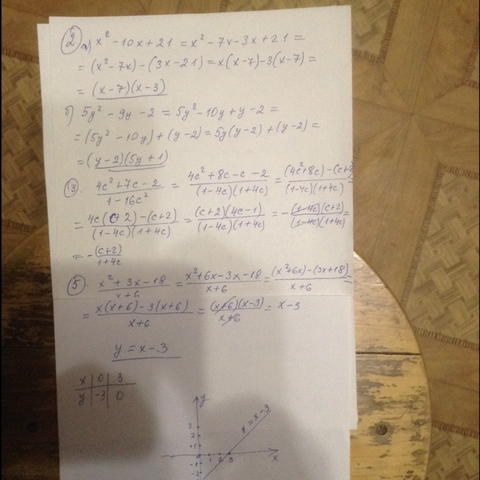 ② а) x² - 10x + 21 = x² - 7x - 3x + 21 =
= (x² - 7x) - (3x - 21) = x(x - 7) - 3(x - 7) =
= (x - 7)(x - 3)
б) 5y² - 9y - 2 = 5y² - 10y + y - 2 =
= (5y² - 10y) + (y - 2) = 5y(y - 2) + (y - 2) =
= (y - 2)(5y + 1)
③ (4c² + 7c - 2)/(1 - 16c²) = (4c² + 8c - c - 2)/((1 - 4c)(1 + 4c)) = ((4c² + 8c) - (c + 2))/((1 - 4c)(1 + 4c)) =
= (4c(c + 2) - (c + 2))/((1 - 4c)(1 + 4c)) = ((c + 2)(4c - 1))/((1 - 4c)(1 + 4c)) = -((1 - 4c)(c + 2))/((1 - 4c)(1 + 4c)) =
= -(c + 2)/(1 + 4c)
⑤ (x² + 3x - 18)/(x + 6) = (x² + 6x - 3x - 18)/(x + 6) = ((x² + 6x) - (3x + 18))/(x + 6) =
= (x(x + 6) - 3(x + 6))/(x + 6) = ((x + 6)(x - 3))/(x + 6) = x - 3
y = x - 3
x | 0 | 3
y | -3 | 0
y
y = x - 3
3
2
1
1 2 3
x
-1
-2